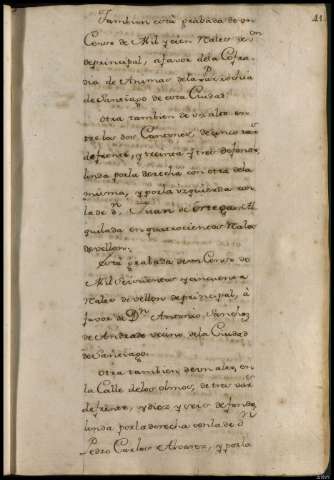 41.
Tambien está grabada de un
Censo de Mil y cien Reales de von
de principal, a favor de la Cofra-
dia de Animas de la Parrochia
de Santiago de esta Ciudad.
Otra tambien de un alto en-
tre los dos Cantones, de cinco vas
de frente, y treinta y tres de fondo,
linda por la derecha con otra de la
misma, y por la izquierda con
la de Dn. Juan de Ortega Al-
quilada en quatrocientos Reales
de vellon.
Está grabada de un Censo de
Mil Seicientos y cinquenta
Reales de vellon de principal, à
favor de Dn. Antonio Sanchez
de Andrade vecino de la Ciudad
de Santiago.
Otra tambien de un alto, en
la Calle de los olmos, de tres vars
de frente, y diez y seis de fondo,
linda por la derecha con la de Dn
Pedro Carlos Alvarez, y por la